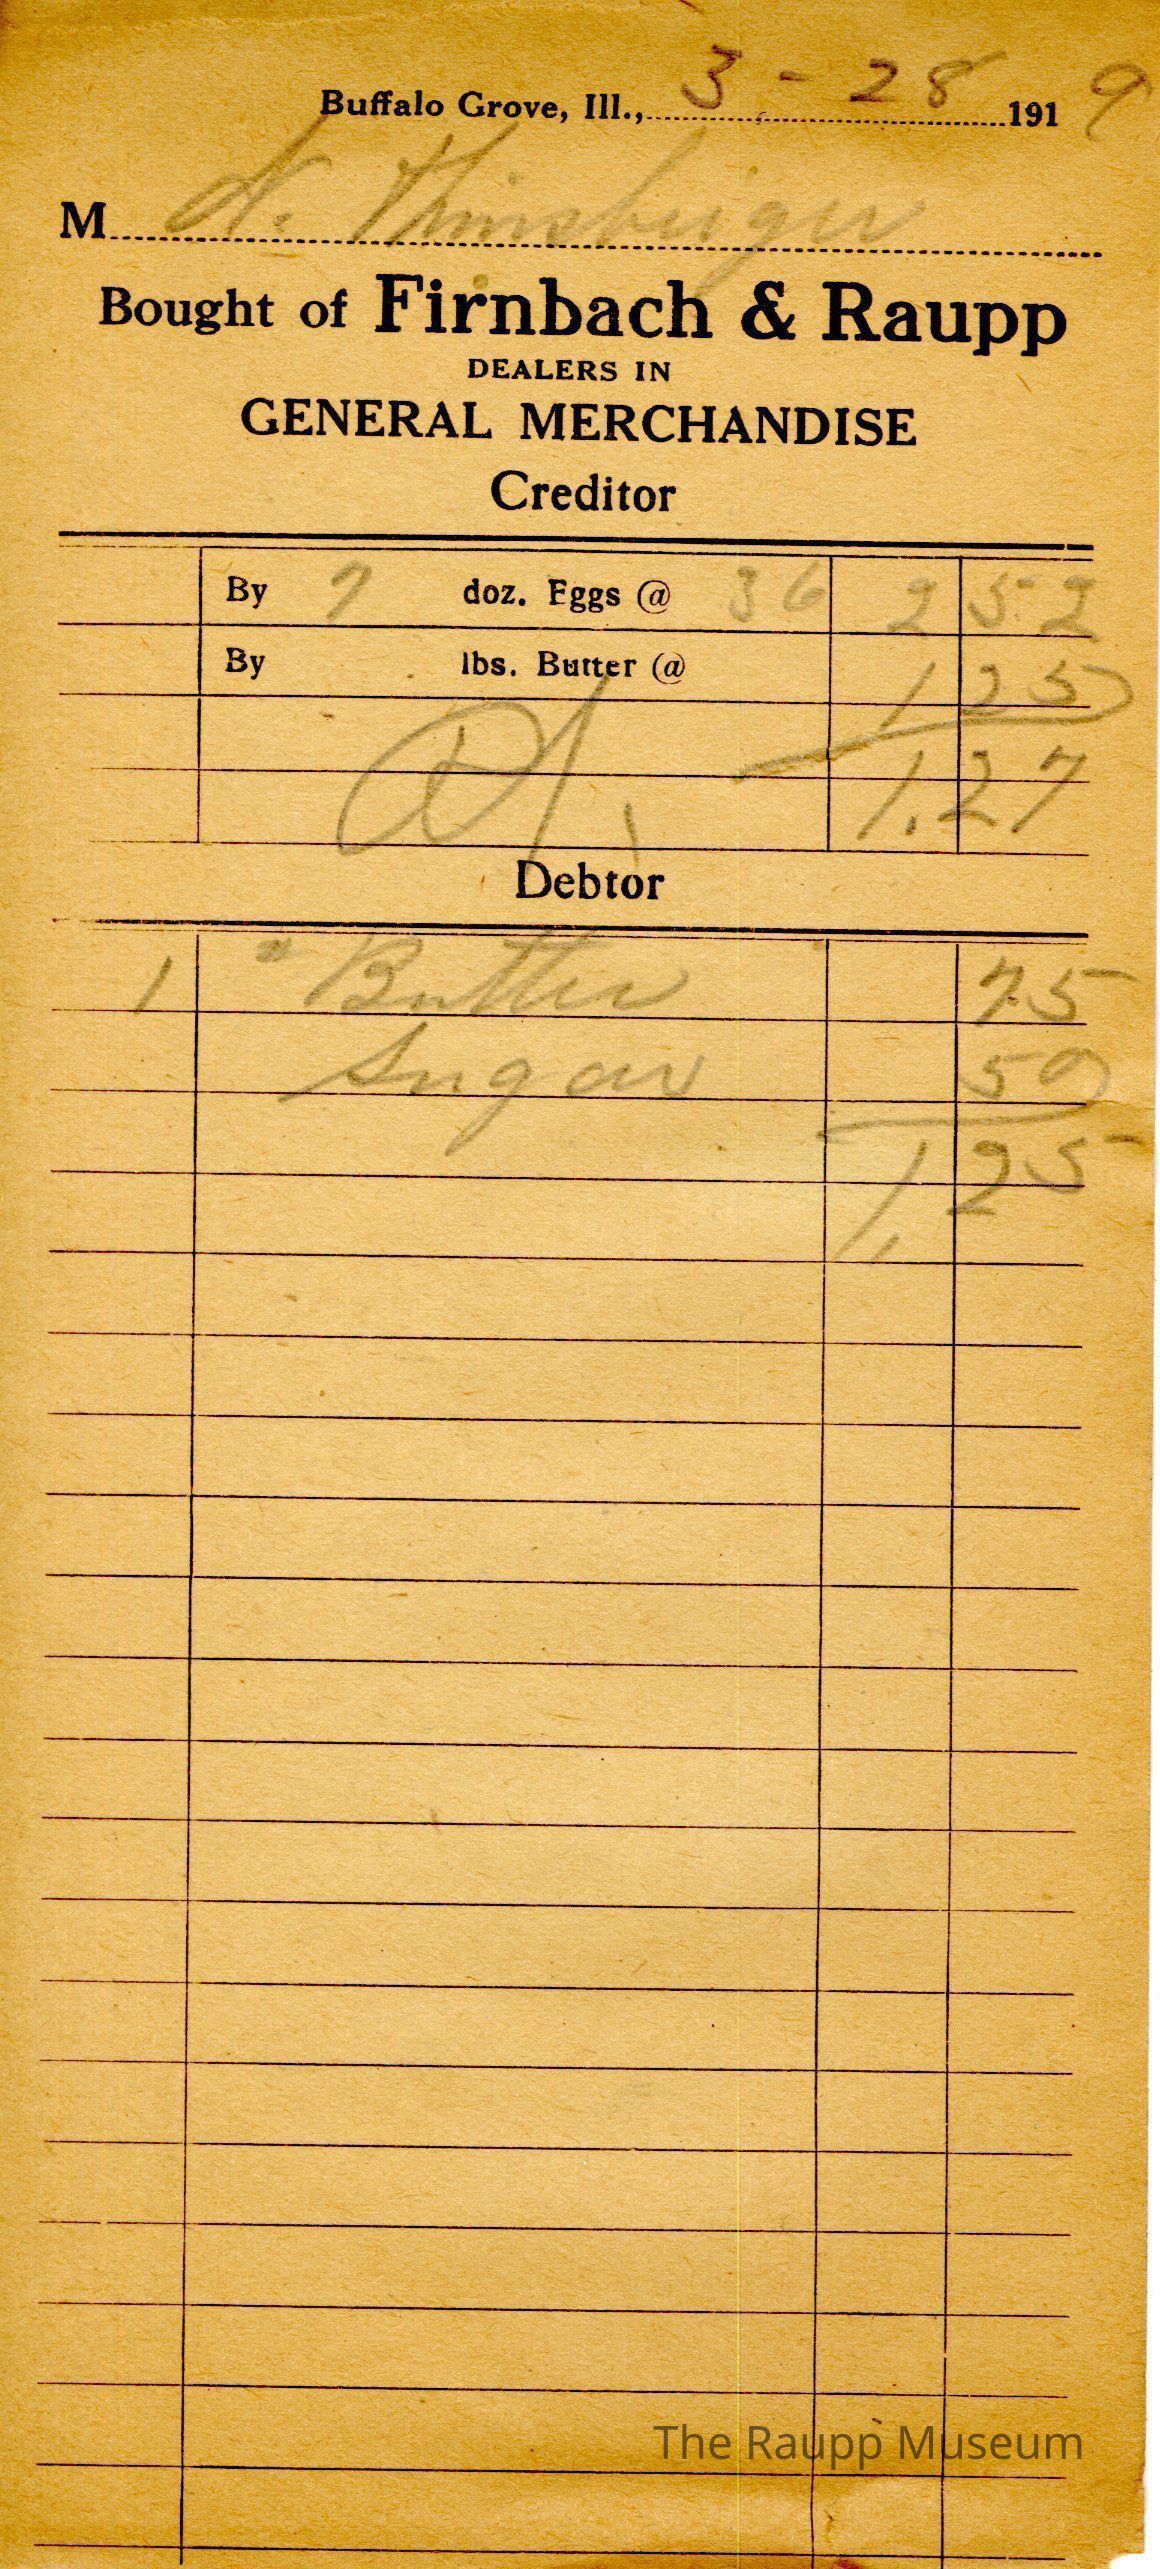 Buffalo Grove, Ill., 3 - 28 1919
M
Bought of Firnbach & Raupp
DEALERS IN
GENERAL MERCHANDISE
Creditor
By 7 doz. Eggs @ 36 2 52
By lbs. Butter @ 1 25
1.27
Debtor
1 " Butter 75
Sugar 50
1,25
The Raupp Museum